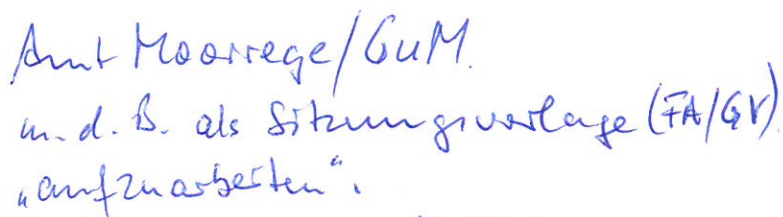 Amt Moorrege/GuM.
m.d.B. als Sitzungsvorlage (FA/GV)
„aufzuarbeiten“.